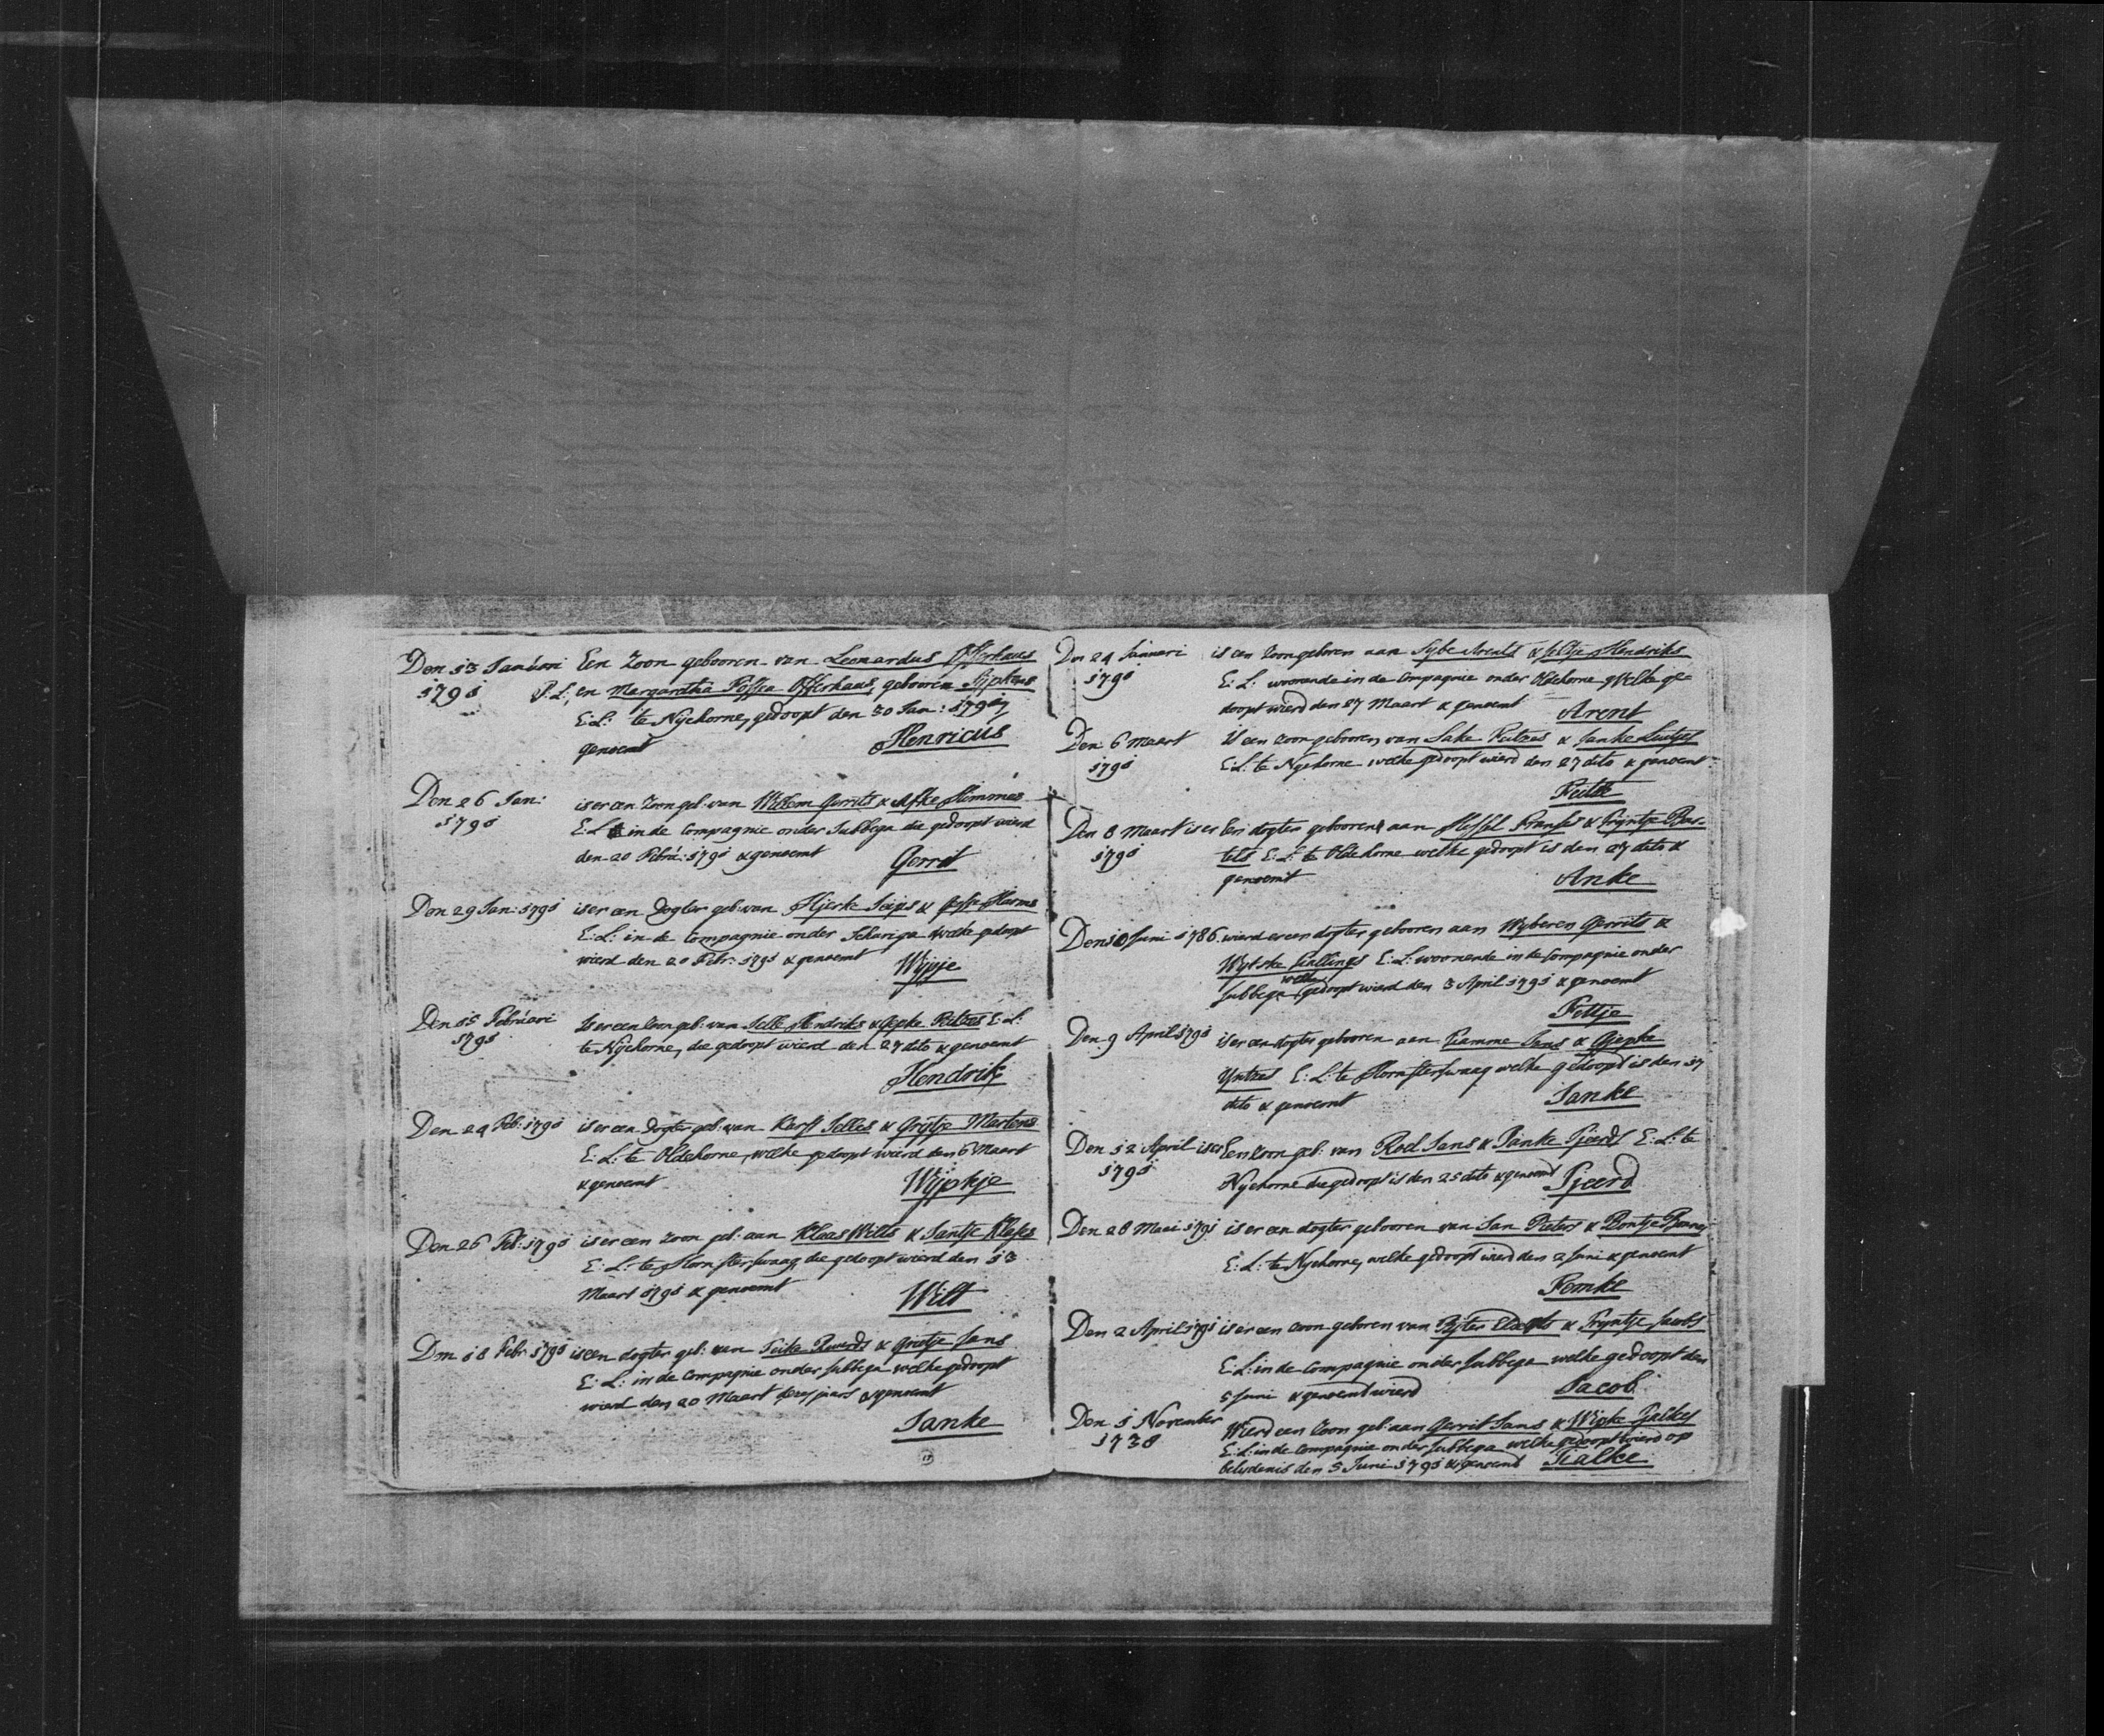 Den 13 Januari Een zoon gebooren van Leonardus Offerhaus
1791 P: L:, en Margaretha Fossea Offerhaus, gebooren Sijpkens
E: L: te Nyehorne, gedoopt den 30 Jan: 1791,
genoemt Henricus
Den 26 Jan: is er een zoon geb: van Willem Gerrits & Afke Hemmes
1791 E: L: in de Compagnie onder Subbega die gedoopt wierd
den 20 Febru: 1791 & genoemt Gerrit
Den 29 Jan: 1791 is er een dogter geb: van Hjerke & Harms
E: L: in de Compagnie onder welke gedoopt
wierd den 20 Febr: 1791 & genoemt Wypje
Den 15 Februari Is er een zoon geb: van Jelle Hendriks & Feitzes E: L:
1791 te Nyehorne, die gedoopt wierd den 27 dito & genoemt
Hendrik
Den 24 Feb: 1791 is er een dogter geb: van Karst Jelles & Grytje Martens
E: L: te Oldehorne, welke gedoopt wierd den 6 Maart
& genoemt Wijpkje
Den 26 Feb: 1791 is er een zoon geb: aan Klaas Wilts & Jantje Klases
E: L: te Hornsterswaag, die gedoopt wierd den 13
Maart 1791 & genoemt Wilt
Den 18 Febr 1791 is een dogter geb: van Ruurds & Grietje Jans
E: L: in de Compagnie onder Subbega welke gedoopt
wierd den 20 Maart dezes jaars & genoemt
Janke
Den 24 Januari is een zoon geboren aan Sybe Arents & Jeltje Hendriks
1791 E: L: woonende in de Compagnie onder Oldehorne, welke ge-
doopt wierd den 27 Maart & genoemt Arent
Den 6 Maart Is een zoon gebooren, van Sake Feitzes & Janke Luitzes
1791 E: L: te Nyehorne welke gedoopt wierd den 27 dito & genoemt
Feitse
Den 8 Maart is er Een dogter gebooren aan Hessel Franses & Tryntje Bar-
1791 tels E: L: te Oldehorne welke gedoopt is den 27 dito &
genoemt Anke
Den 10 Juni 1786. wierd er een dogter gebooren aan Wyberen Gerrits &
Wytske E: L: woonende in de Compagnie onder
welke
Subbega, gedoopt wierd den 3 April 1791 & genoemt
Fettje
Den 9 April 1791 is er een dogter gebooren aan Jans &
Yntzes E: L: te Hornsterswaag welke gedoopt is den 17
dito & genoemt Janke
Den 12 April is er Een zoon geb: van Roel Jans & Janke Tjeerds E: L: te
1791 Nyehorne die gedoopt is den 25 dito & genoemt Tjeerd
Den 28 Maei 1791 is er een dogter gebooren van Jan Pieters & Bontje
E: L: te Nyehorne, welke gedoopt wierd den 2 Juni & genoemt
Femke
Den 2 April 1791 is er een zoon geboren van Pijter & Tryntje Jacobs
E: L: in de Compagnie onder Subbega welke gedoopt den
5 Juni & genoemt wierd Jacob
Den 1 November Wierd een zoon geb: aan Gerrit Jans & Wipke Tjalkes
1738 E: L: in de Compagnie onder Subbega welke gedoopt wierd op
belydenis den 5 Juni 1791 & genoemt Tialke